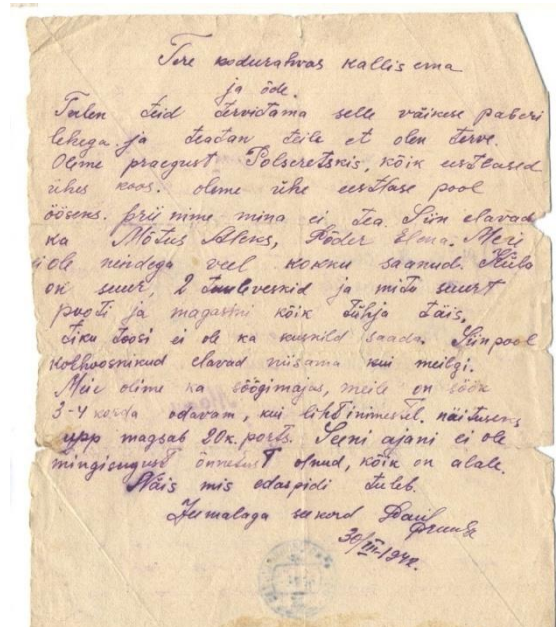 Tere kodurahvas kallis ema
ja õde.
Tulen teid tervitama selle väikese paberi
lehega ja teatan teile et olen terve.
Olime praegust Polseretskis, kõik eestlased
ühes koos. oleme ühe eestlase pool
öösens. prii nime mina ei tea. Siin elavad
ka Mõtus Aleks, Rõder Elena. Meie
ei ole nendega veel kokku saanud. Küla
on suur, 2 tuuleveskid ja mitu suurt
pooti ja magasini kõik tühja täis,
tiku toosi ei ole ka kuskild saada. Siinpool
kolhoosnikud elavad niisama kui meilgi.
Meie olime ka söögimajas, meile on söök
3-4 korda odavam, kui lihtinimestel. näituseks
upp magsab 20k. ports. Seeni ajani ei ole
mingisugust õnnetust olnud, kõik on alale.
Näis mis edaspidi tuleb.
Jumalaga seekord Paul
30/III-1942.